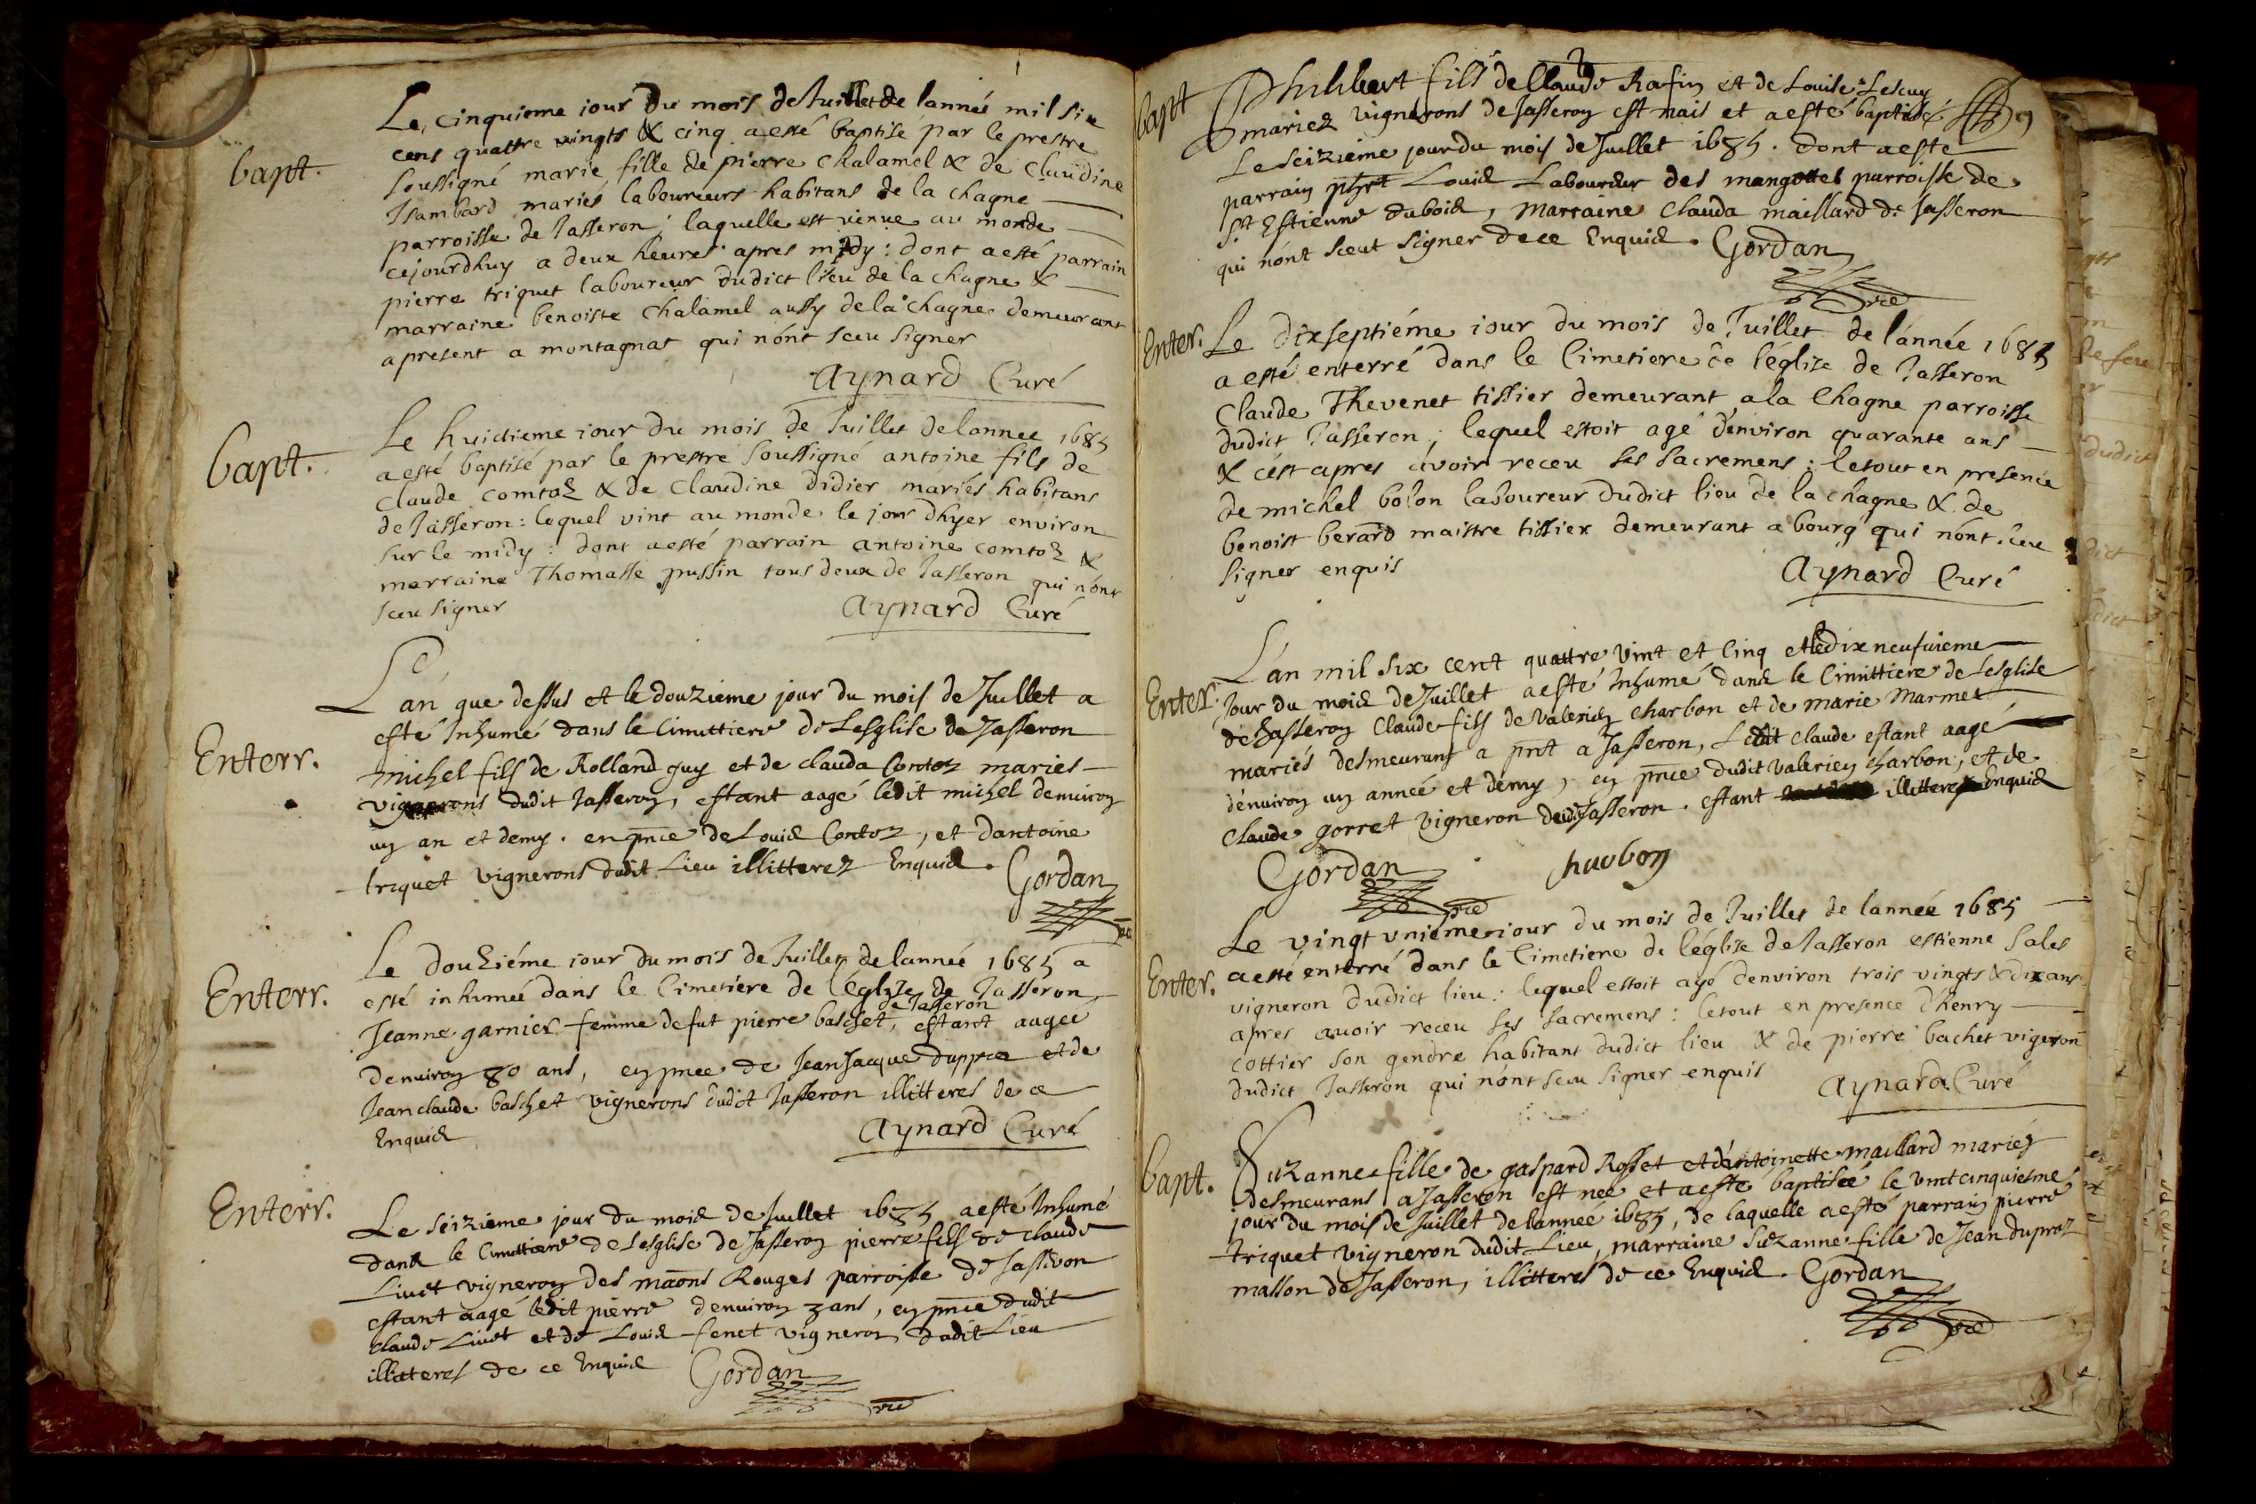 Le, cinquieme iour du mois de Juillet de lanneé mil six
bapt.
cens quattre vingts & cinq a esté baptisé par le prestre
soussigné marie fille de pierre chalamel & de claudine
Isambard mariés laboureurs habitans de la chagne
parroisse de Jasseron; laquelle est venue au monde
cejourdhuy a deux heures apres midy: dont a esté parrain
pierre triquet laboureur dudict lieu de la chagne &
marraine benoiste chalamel aussy de la chagne demeurant
apresent a montagnat qui nónt sceu signer
Aynard Curé
bapt.
Le huictieme iour du mois de Juillet delannee 1685
a esté baptisé par le prestre soussigné antoine fils de
claude comtoz & de claudine didier mariés habitans
de Jasseron: lequel vint au monde le jour dhyer environ
sur le midy: dont a esté parrain antoine comtoz &
marraine Thomasse pussin tous deux de Jasseron qui nónt
sceu signer
Aynard Curé
Enterr.
Lán que dessus et le douzieme jour du mois de Juillet a
esté Inhumé dans le Cimittiere de Lesglise de Jasseron
michel fils de Rolland guy et de clauda Contoz mariés
vignerons dudit Jasseron, estant aagé ledit michel denuiron
un an et demy. en pnce de Louis Contoz, et dantoine
triquet vignerons dudit Lieu illitterez Enquis. Gordan
vic
Enterr.
Le douziéme iour du mois de Juillet de lanneé 1685 a
esté inhumeé dans le Cimetiére de léglize de Jasseron
de Jasseron
Jeanne garnier femme defut pierre baschet, estant aagee
denuiron 80 ans, en pnce de Jean Jacque dupprez et de
Jean claude baschet vignerons dudit Jasseron illitteres de ce
Enquis
Aynard Curé
Enterr.
Le seizieme jour du mois de Juillet 1685 a esté Inhumé
dans le Cimittiere de Lesglise de Jasseron pierre fils de claude
Livet vigneron des maons Rouges parroisse de Jasseron
estant aagé ledit pierre denuiron 3 ans, en pnce dudit
claude Livet et de Louis fenet vigneron dudit Lieu
illitteres de ce Enquis Gordan
vic
bapt
Philibert fils de Claude Rafin et de Louise Lescuy
mariez vignerons de Jasseron est nais et a esté baptisé
Le seizieme jour du mois de Juillet 1685. dont a esté
parrain Louis Laboureur des mangettes parroisse de
St Estienne dubois, marraine clauda maillard de Jasseron
qui nónt sceut signer de ce Enquis. Gordan
vic
Enter.
Le dixseptiéme iour du mois de Juillet de lánnée 1685
a esté enterré dans le Cimetiere de léglize de Jasseron
Claude Thevenet tissier demeurant a la Chagne parroisse
dudict Jasseron; lequel estoit agé dénviron quarante ans
& cést apres ávoir receu ses sacremens: letout en presence
de michel bolon laboureur dudict lieu de la chagne & de
benoist berard maistre tissier demeurant a bourg qui nónt sceu
signer enquis
Aynard Curé
Enter.
Lán mil six cent quattre vint et Cinq et le dixneufuieme
Jour du mois de Juillet a esté Inhumé dans le Cimittiere de Lesglise
de Jasseron Claude fils de Valerien charbon et de marie marmet
mariés desmeurans a pnt a Jasseron, Ledit claude estant aagé
dénuiron un anneé et demy, en pnce dudit valerien charbon, et de
claude gorret vigneron dudit Jasseron. estant illitteres Enquis
Gordan
vic
charbon
Enter.
Le vingt vnieme iour du mois de Juillet de lanneé 1685
a esté enterré dans le Cimetiere de léglize de Jasseron estienne sales
vigneron dudict lieu: lequel estoit agé denviron trois vingts & dix ans
apres avoir receu ses sacremens: letout en presence dhenry
cottier son gendre habitant dudict lieu & de pierre bachet vigeron
dudict Jasseron qui nónt sceu signer enquis
Aynard Curé
bapt.
Suzanne fille de gaspard Rosset et dántoinette maillard mariéz
desmeurans a Jasseron est neé et a esté baptiseé le vint cinquiesme
jour du mois de Juillet de lanneé 1685, de laquelle a esté parrain pierre
triquet vigneron dudit Lieu, marraine Suzanne fille de Jean duprez
masson de Jasseron, illitteres de ce Enquis. Gordan
vic